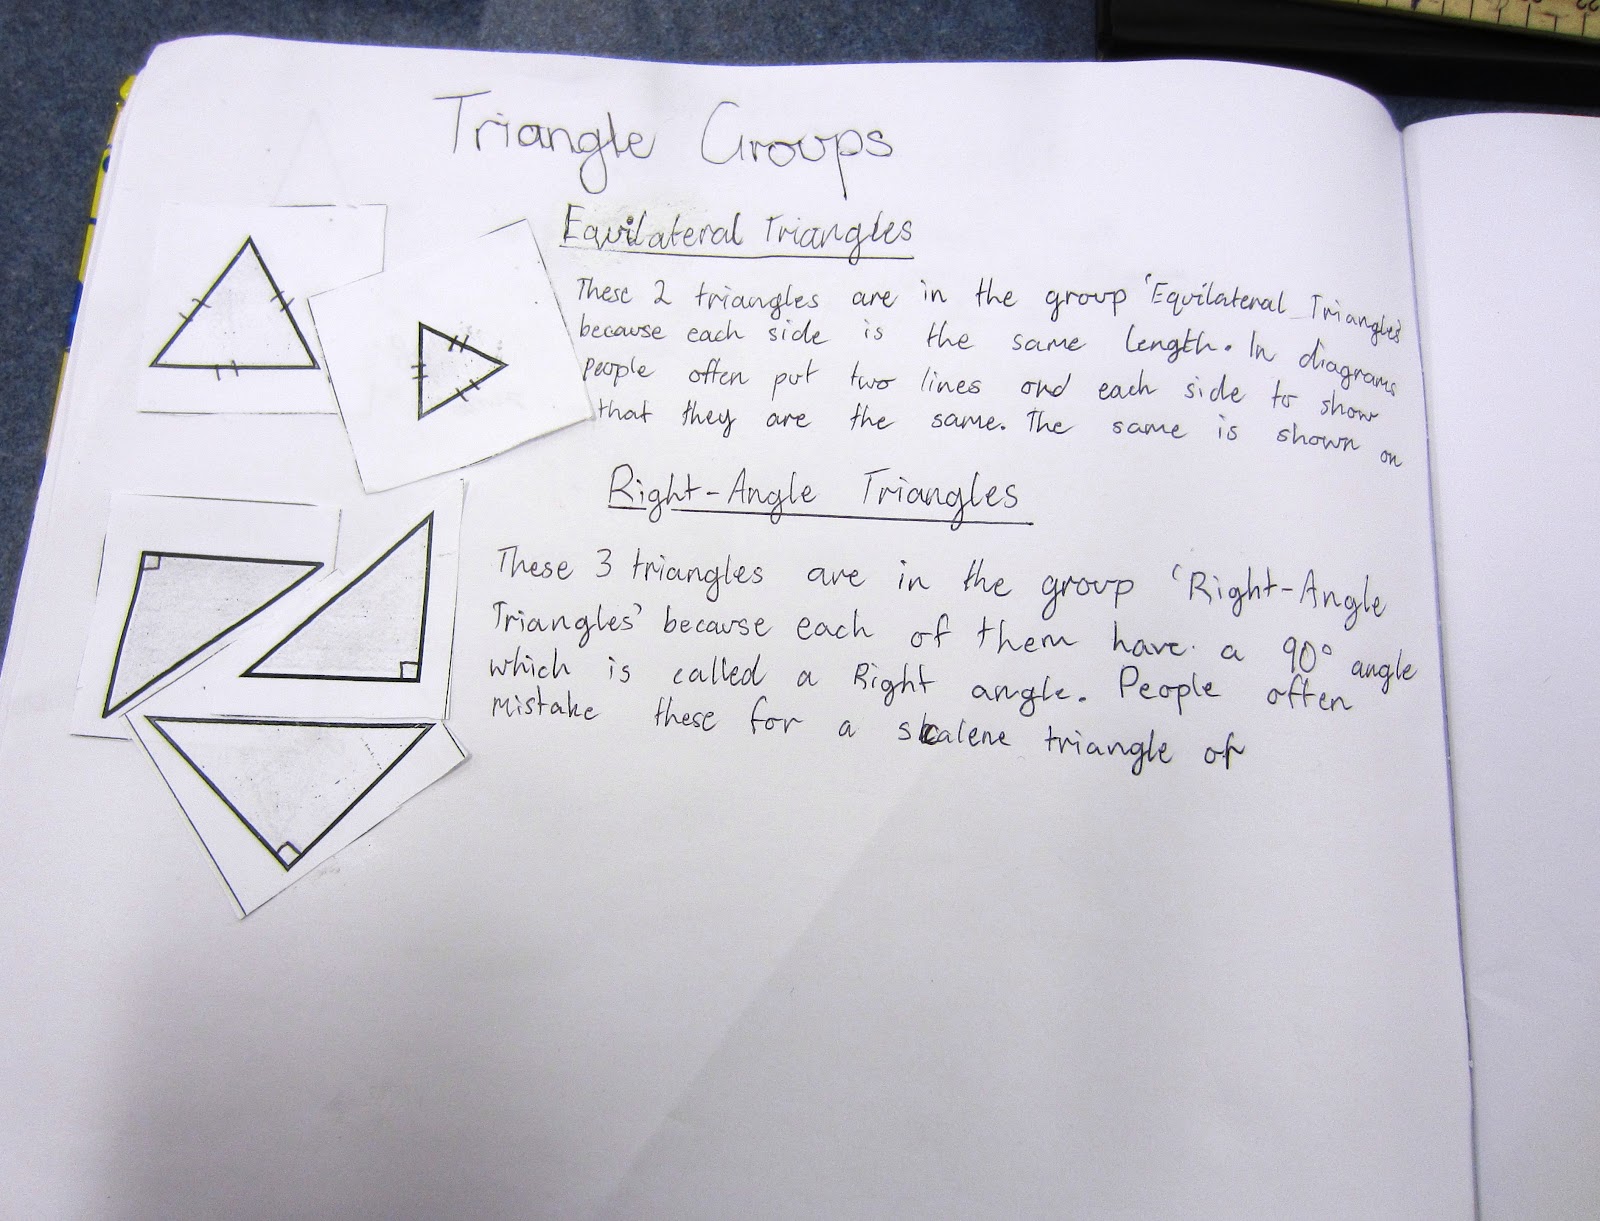 Triangle Groups
Equilateral Triangles
These 2 triangles are in the group 'Equilateral Triangles'
because each side is the same length. In diagrams
people often put two lines ond each side to show
that they are the same. The same is shown on
Right-Angle Triangles
These 3 triangles are in the group 'Right-Angle
Triangles' because each of them have a 90° angle
which is called a Right angle. People often
mistake these for a scalene triangle of